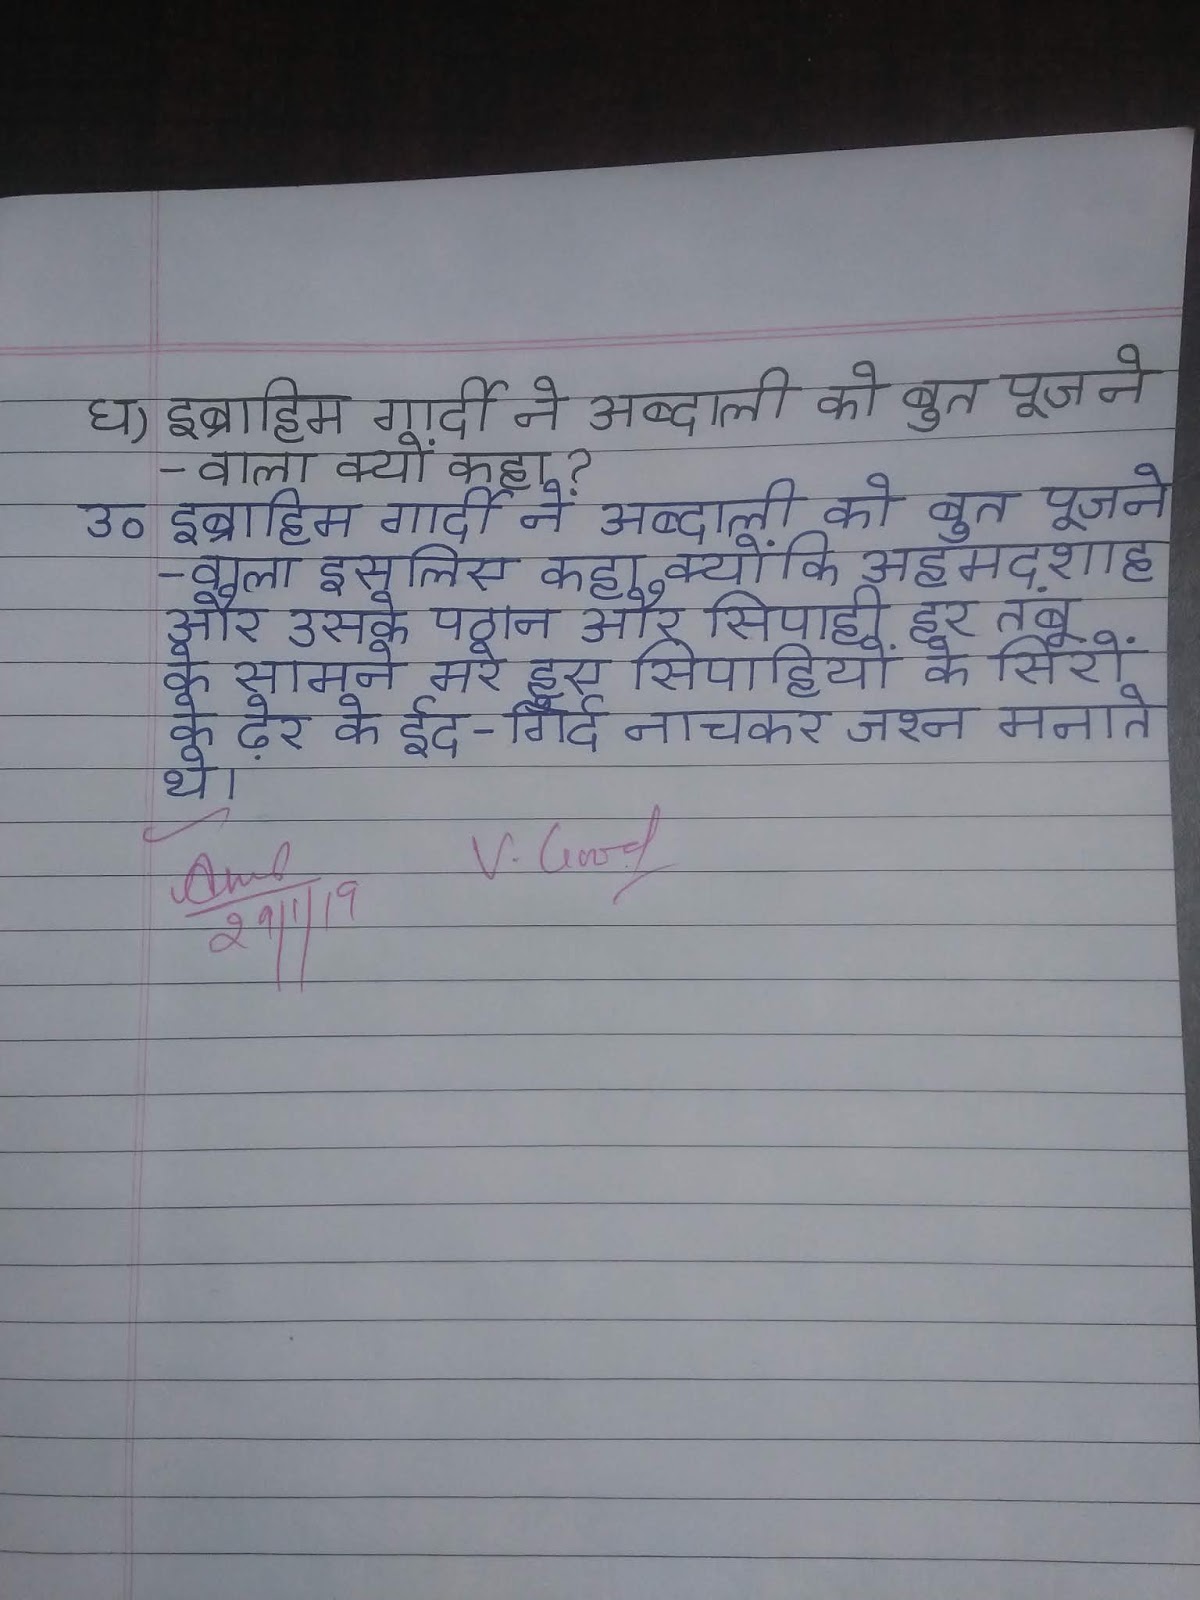 घ) इब्राहिम गार्दी ने अब्दाली को बुत पूजने
-वाला क्यों कहा?
उ० इब्राहिम गार्दी ने अब्दाली को बुत पूजने
-वाला इसलिस कहा क्योंकि अहमदशाह
और उसके पठान और सिपाही हर तंबू
के सामने मरे हुस सिपाहियों के सिरों
के ढ़ेर के ईद-गिर्द नाचकर जश्न मनाते
थे।
V. Good
29/1/19